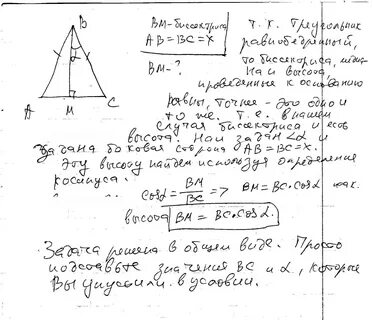 B
BM-биссектриса
AB=BC=X
BM-?
т.к. Треугольник
равнобедренный,
то биссектриса,
на и высота,
проведенные к основанию
A M C
равны, точнее - это одно и
то же. т.е. в нашем
случае биссектриса и есть
высота. Нам задан <α и
задана боковая сторона AB=BC=X.
Эту высоту найдем используя определение
косинуса.
cosα = BM/BC => BM=BC·cosα
высота BM = BC·cosα.
Задача решена в общем виде. Просто
подставьте значения BC и α, которые
Вы упустили в условии.